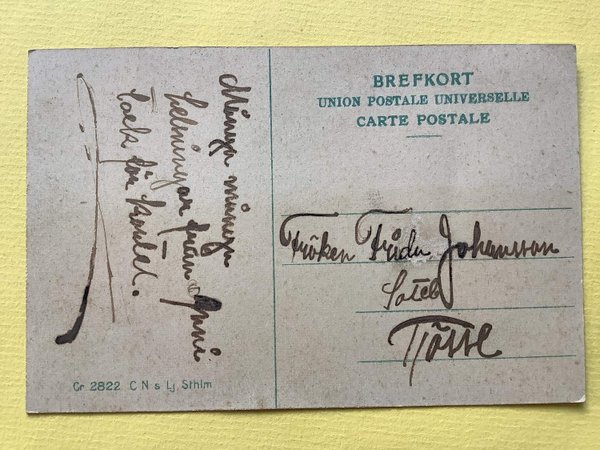 Många många
helsningar från Anni
tack för kortet.
BREFKORT
UNION POSTALE UNIVERSELLE
CARTE POSTALE
Fröken Frida Johansson
Tösse
Gr. 2822 C N & Lj, Sthlm